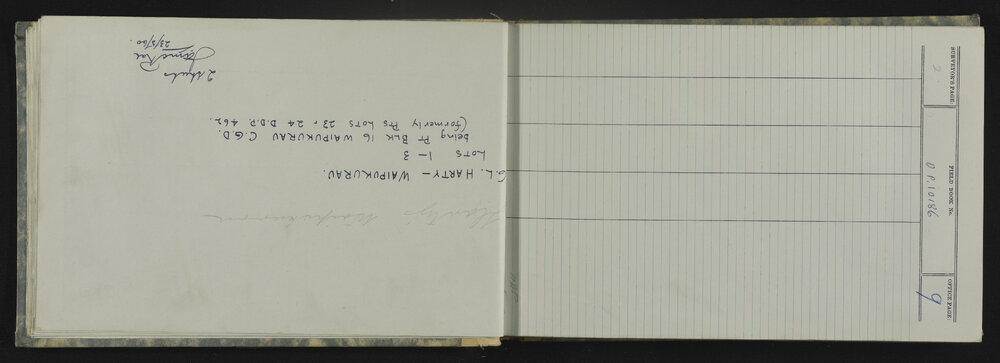 G.L. HARTY – WAIPUKURAU.
LOTS 1–3
being Pt BLK 16 WAIPUKURAU C.G.D.
(formerly Pts LOTS 23 & 24 D.D.P. 462.
2 sheets
23/5/60.
SURVEYOR'S PAGE:
2
FIELD BOOK No.
D.P. 10186
OFFICE PAGE:
9